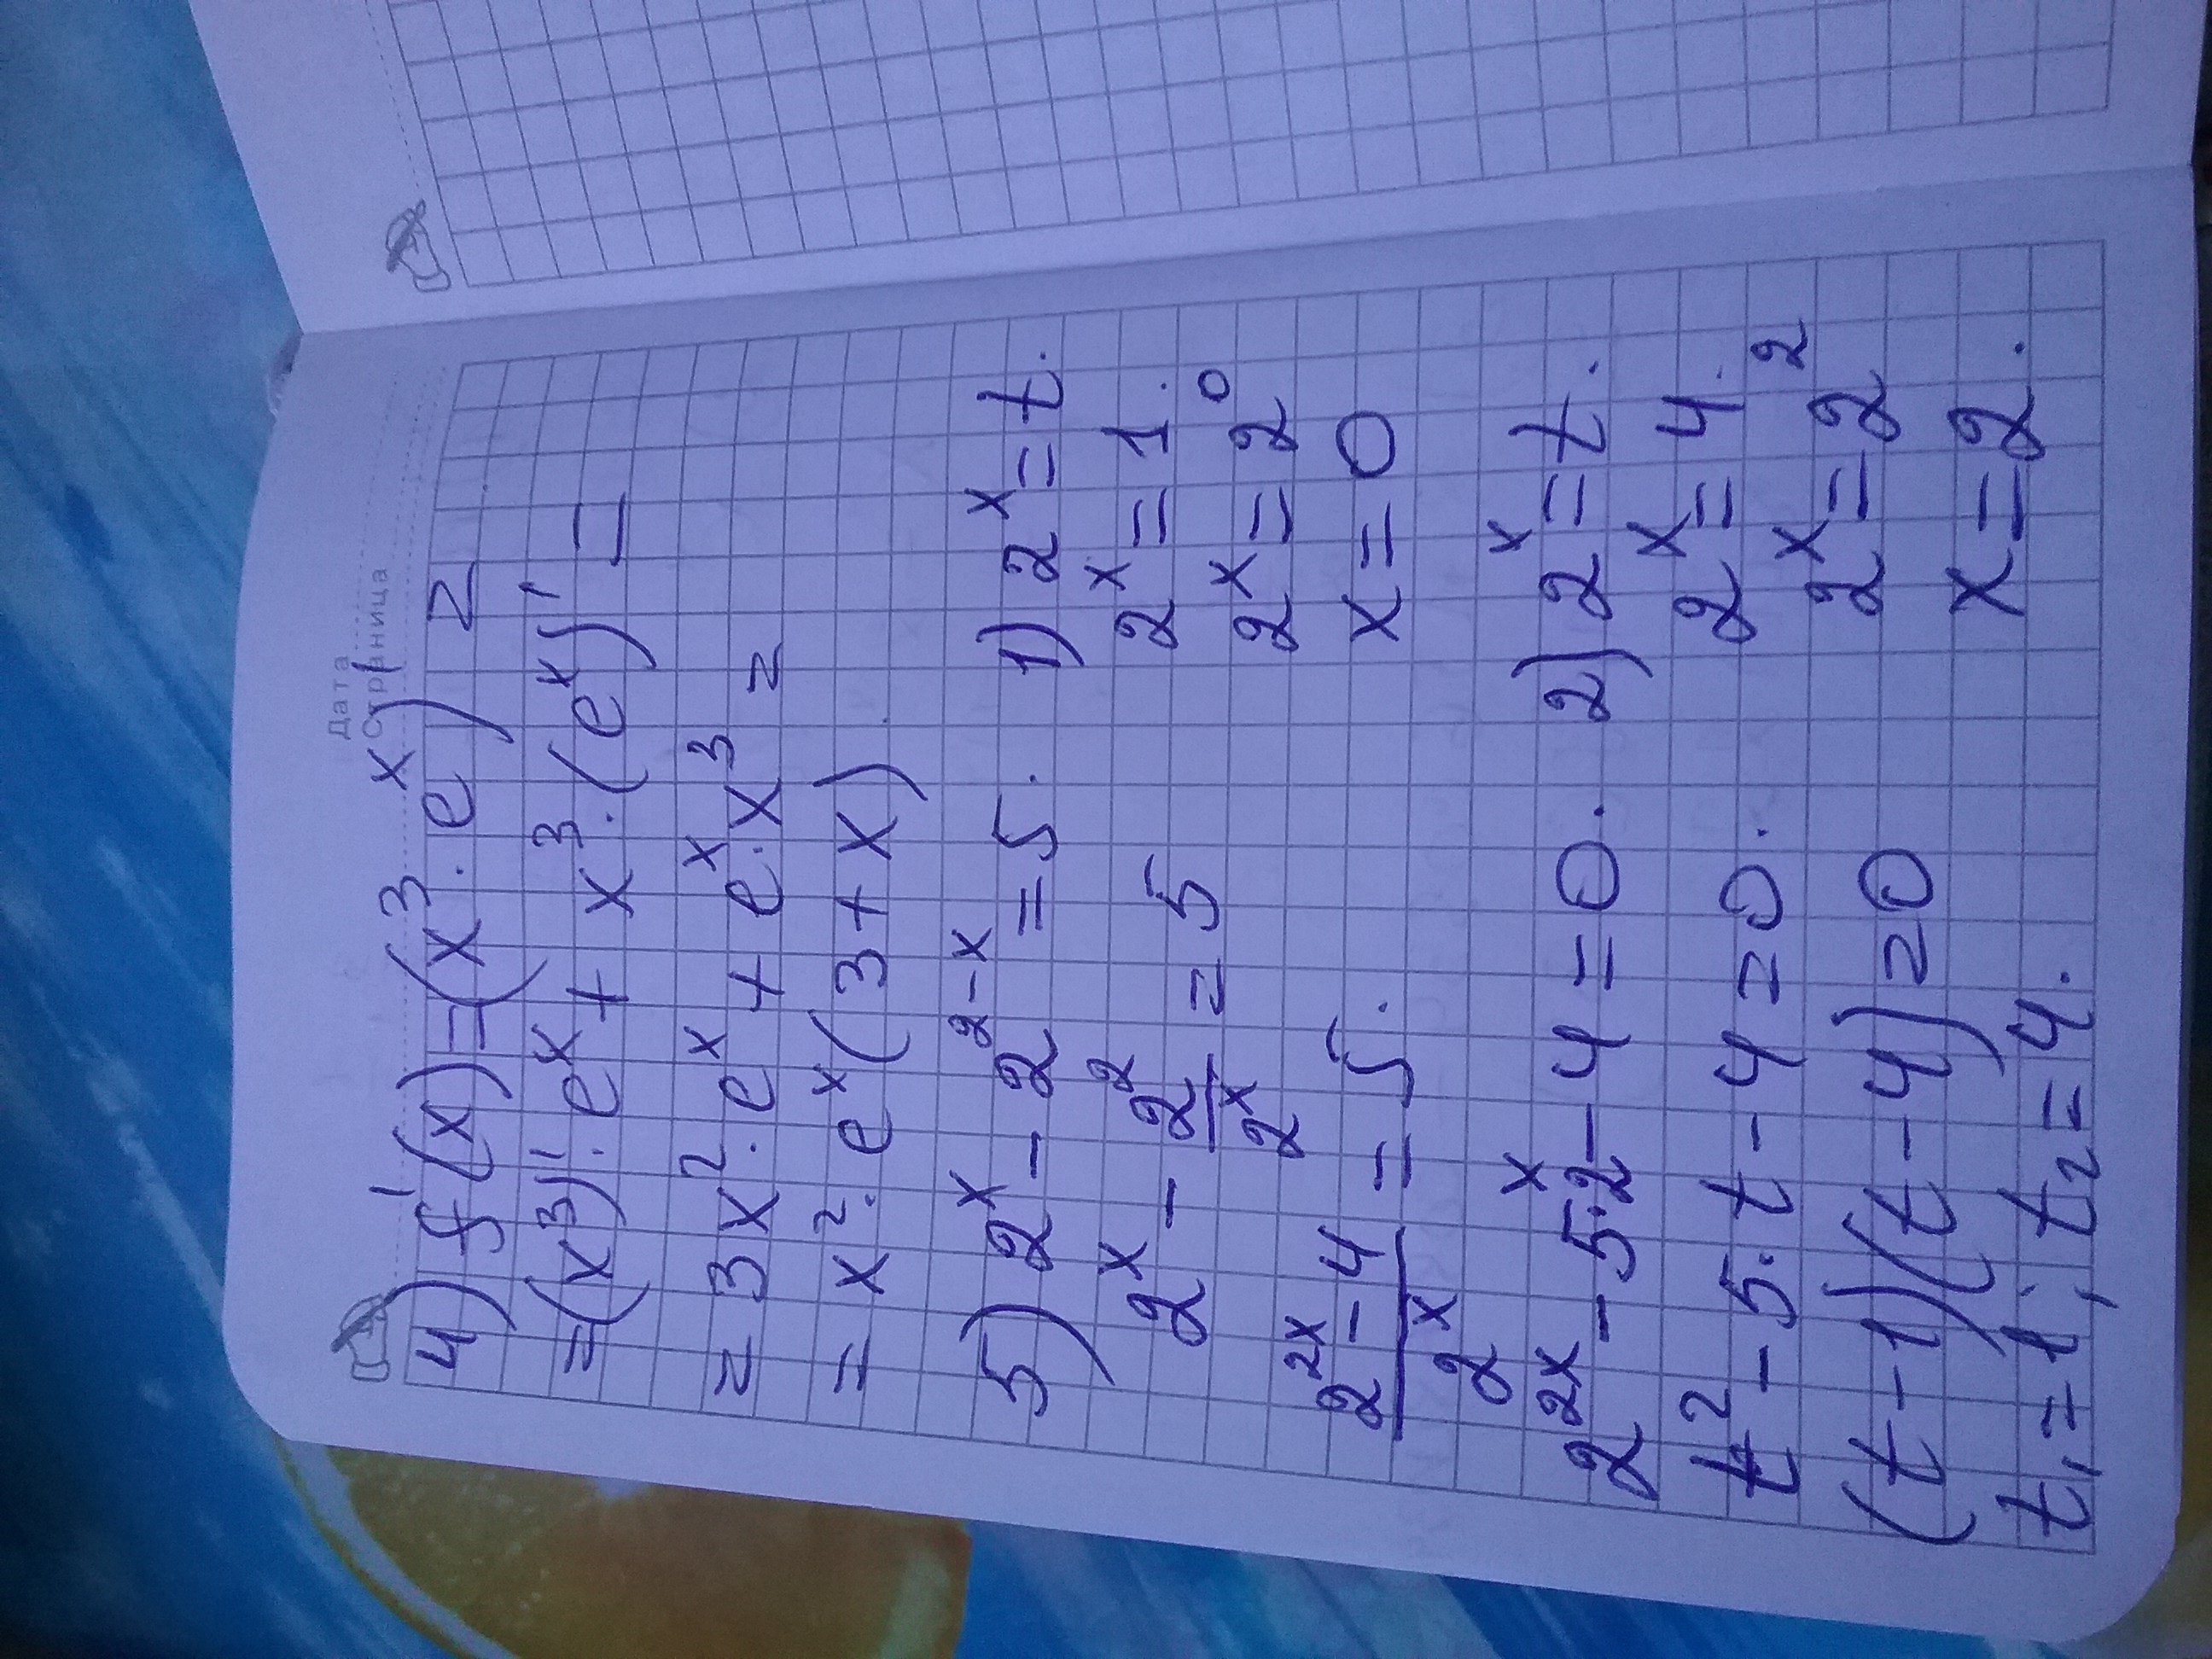 Дата
Страница
4) f'(x)=(x³·eˣ)'=
=(x³)'·eˣ+x³·(eˣ)'=
=3x²·eˣ+eˣ·x³=
=x²·eˣ(3+x)
5) 2ˣ-2²⁻ˣ=5.
2ˣ-2²/2ˣ=5
(2²ˣ-4)/2ˣ=5.
2²ˣ-5·2ˣ-4=0.
t²-5·t-4=0.
(t-1)(t-4)=0
t₁=1; t₂=4.
1) 2ˣ=t.
2ˣ=1.
2ˣ=2⁰
x=0
2) 2ˣ=t.
2ˣ=4.
2ˣ=2²
x=2.